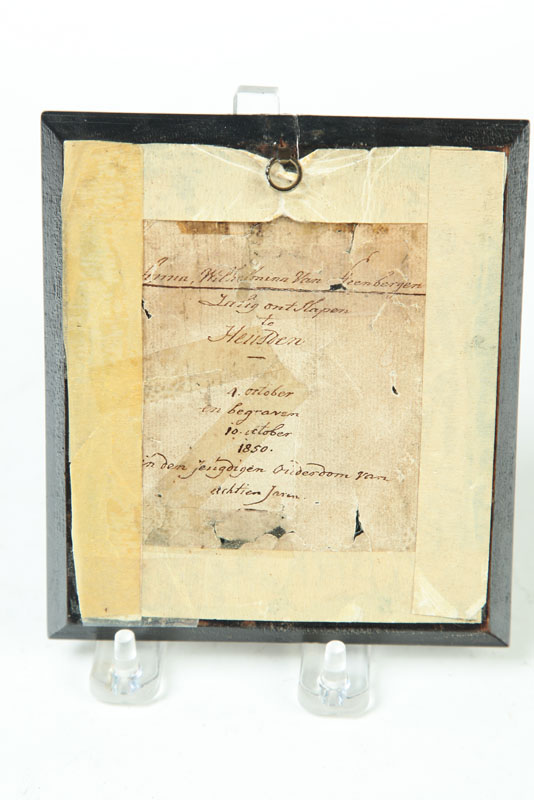 Anna, Wilhelmina Van Steenbergen
Zalig ontslapen
te
Heusden
4. October
en begraven
10. october
1850.
in den jeugdigen Oüderdom van
achtien Jaren.